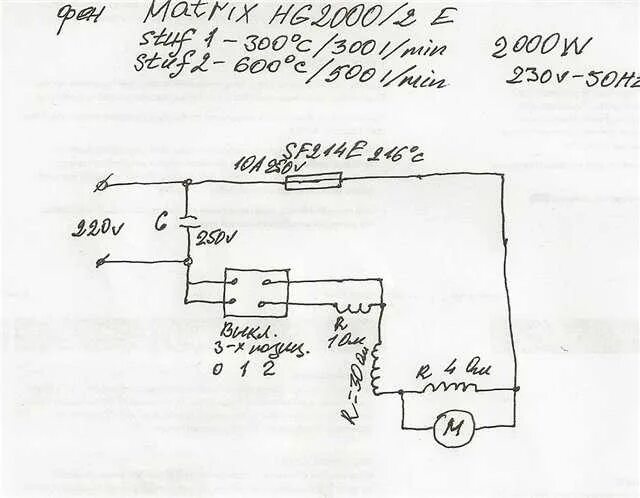 фен Matrix HG2000/2 E
stuf 1 - 300°C/300l/min 2000W
stuf 2 - 600°C/500l/min 230v-50Hz
SF214E 216°C
10A 250v
220v
C
250v
Выкл.
3-х позиц.
0 1 2
R
1 Ом
R=30 Ом
R 4 Ом
M